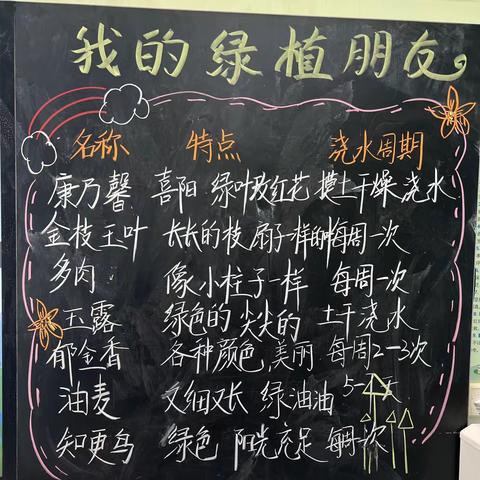 我的绿植朋友
名称 特点 浇水周期
康乃馨 喜阳 绿叶 红花 土干燥 浇水
金枝玉叶 长长的枝 扇子一样的叶 每周一次
多肉 像小柱子一样 每周一次
玉露 绿色的 尖尖的 土干浇水
郁金香 各种颜色,美丽 每周2-3次
油麦 又细又长 绿油油 5-7天
知更鸟 绿色 阳光充足 每周一次